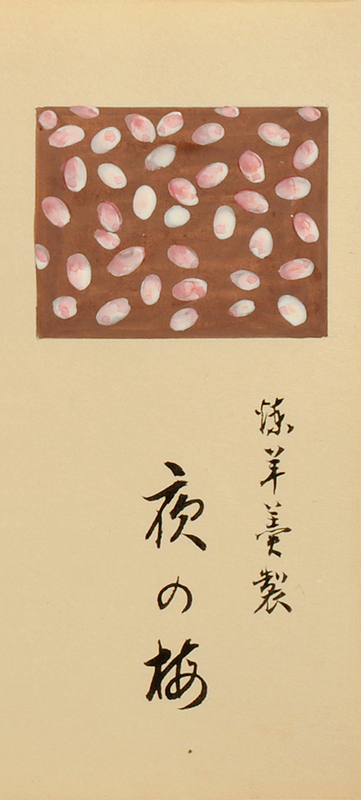 煉羊羹製
夜の梅